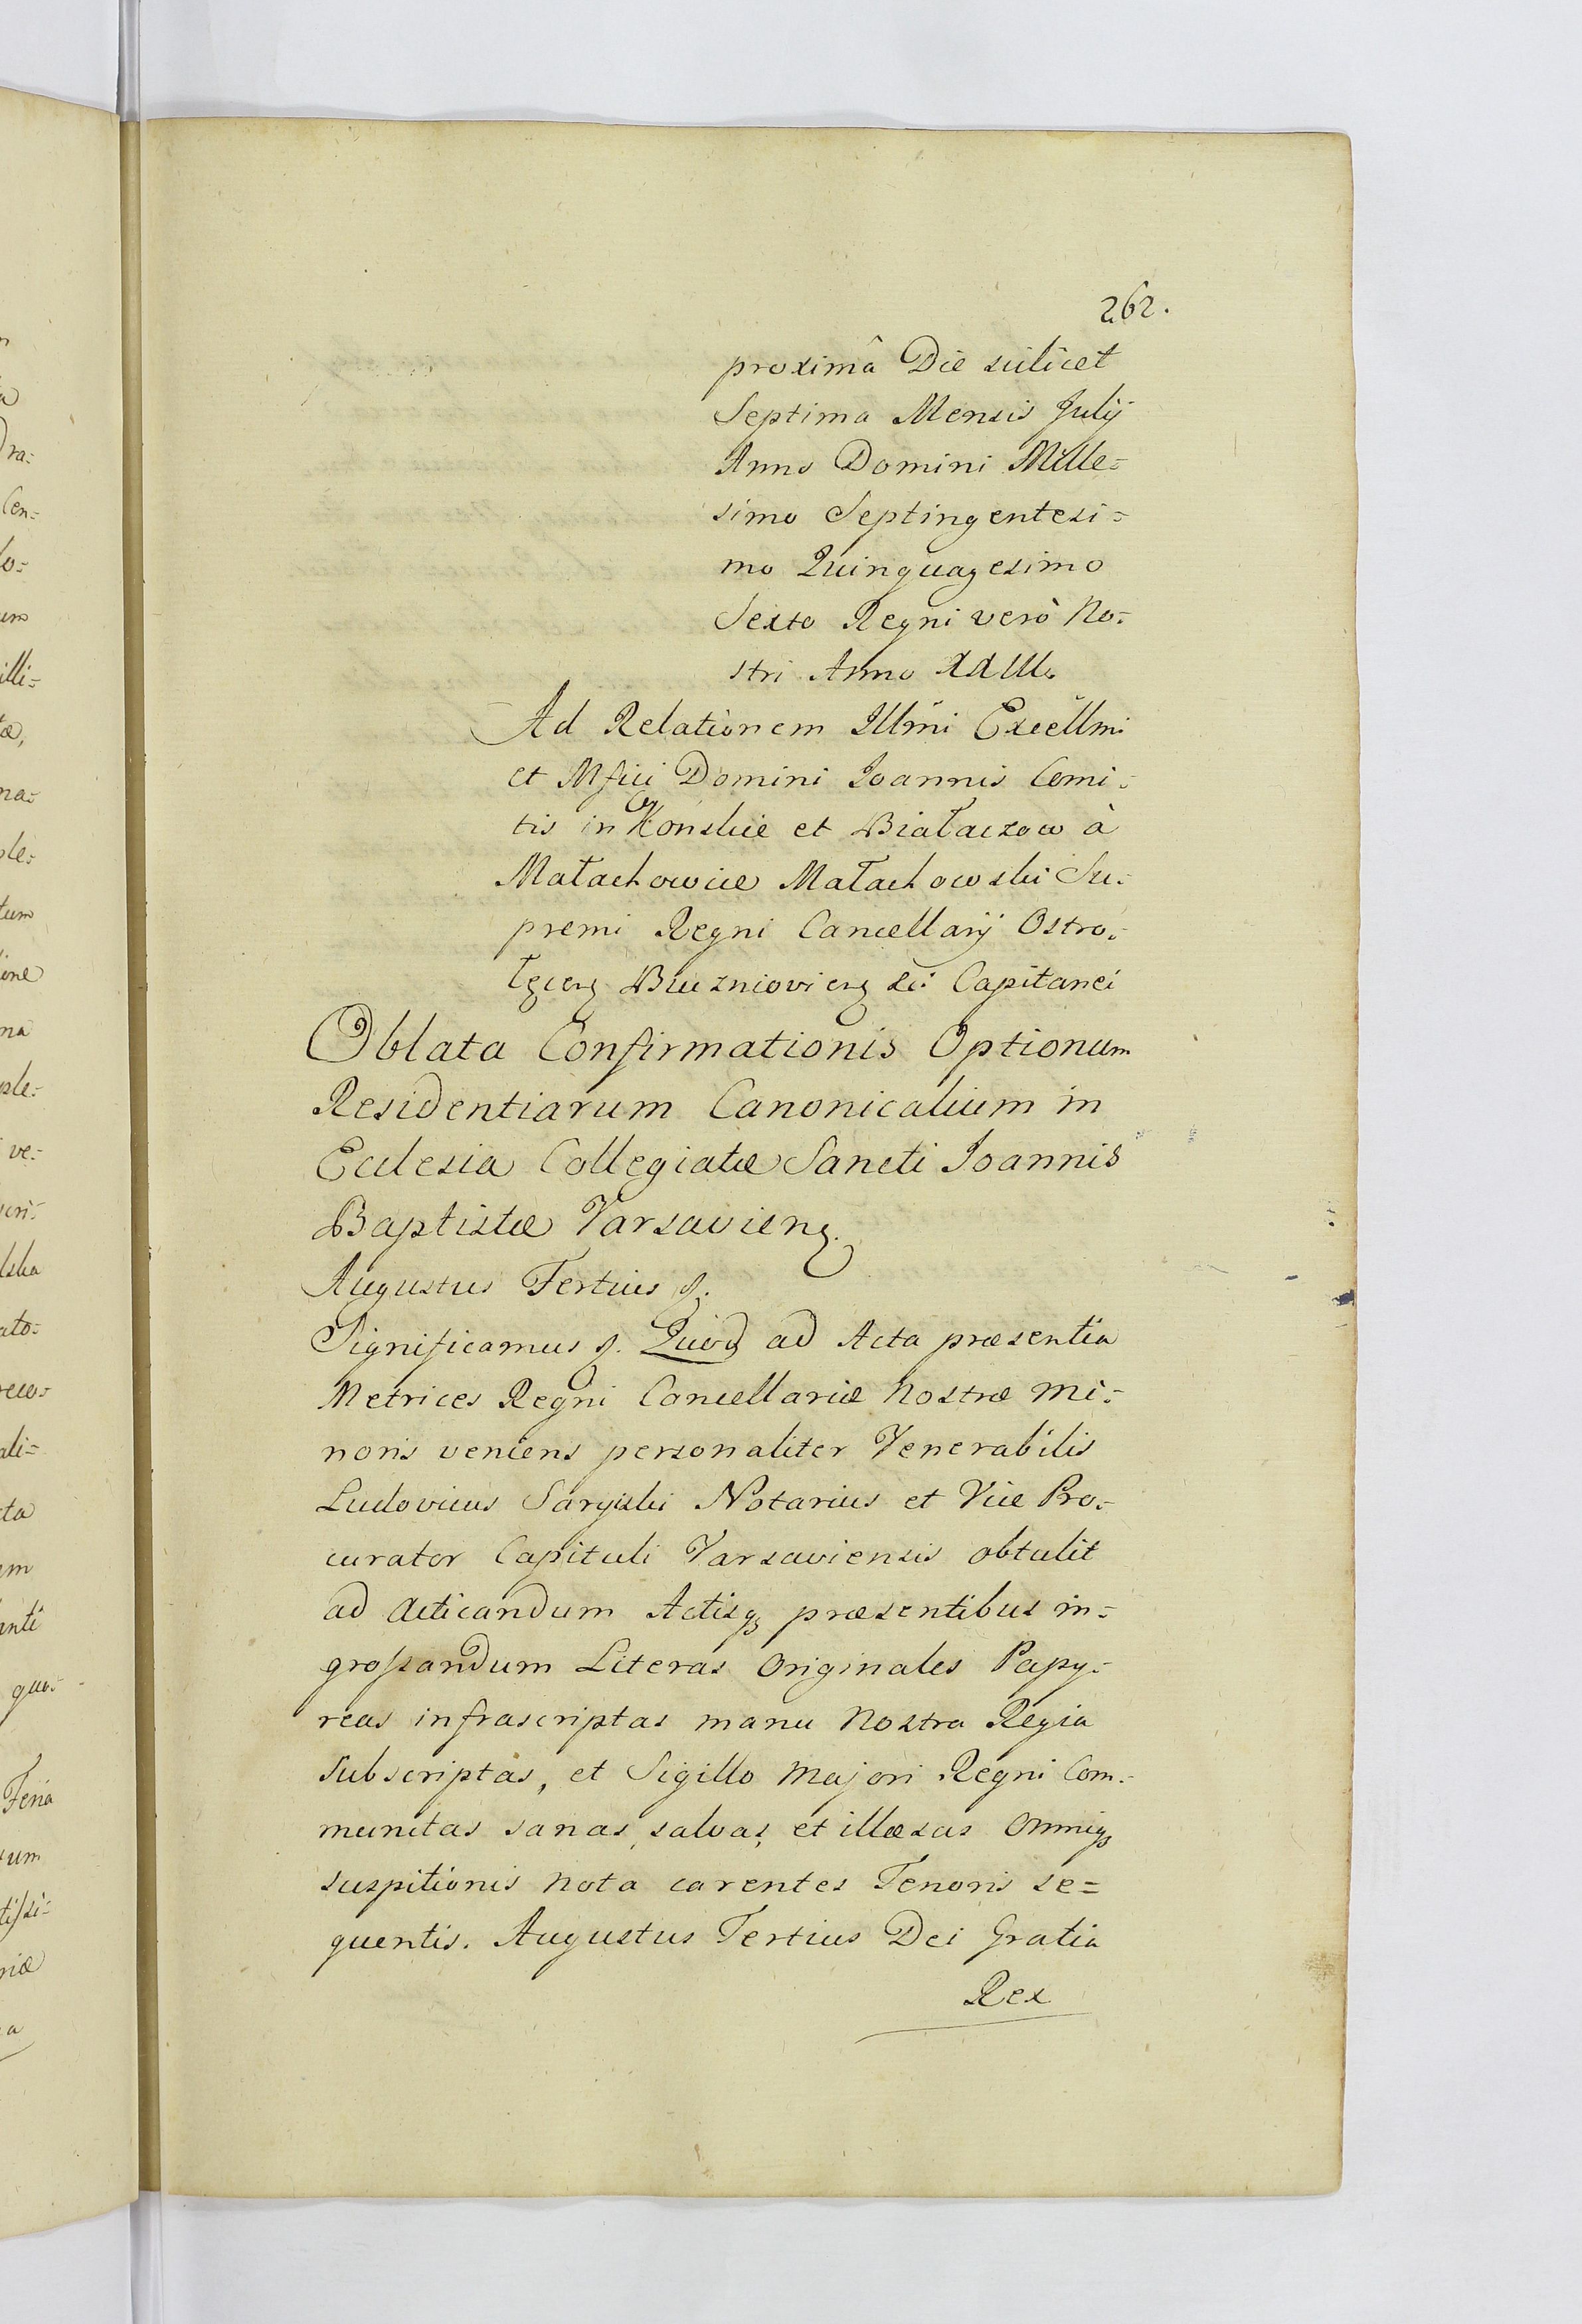 262.
proximâ Die scilicet
Septima Mensis Julij
Anno Domini Mille=
simo Septingentesi=
mo Quinquagesimo
Sexto Regni verò No=
stri Anno XXIII.
Ad Relationem Illmi Excellmi
et Mfici Domini Joannis Comi=
tis in Konskie et Białaczow à
Małachowice Małachowski Su=
premi Regni Cancellarij Ostro=
Bluzniovien Capitanei
Oblata Confirmationis Optionum
Residentiarum Canonicalium in
Ecclesia Collegiatæ Sancti Joannis
Baptistæ Varsavien.
Augustus Tertius
Significamus Quod ad Acta præsentia
Metrices Regni Cancellariæ Nostræ Mi=
noris veniens personaliter Venerabilis
Ludovicus Notarius et Vice Pro=
curator Capituli Varsaviensis obtulit
ad Acticandum Actisq præsentibus in=
grossandum Literas Originales Papy=
reas infrascriptas manu Nostra Regia
Subscriptas, et Sigillo Majori Regni Com=
munitas sanas, salvas, et illæsas Omniq
suspitionis nota carentes Tenoris se=
quentis. Augustus Tertius Dei Gratia
Rex
dra=
Cen=
lo=
um
illi=
na=
ple=
tum
ione
ma
ple=
ve=
lska
ato=
ali=
cta
quo=
Feria
riæ
a